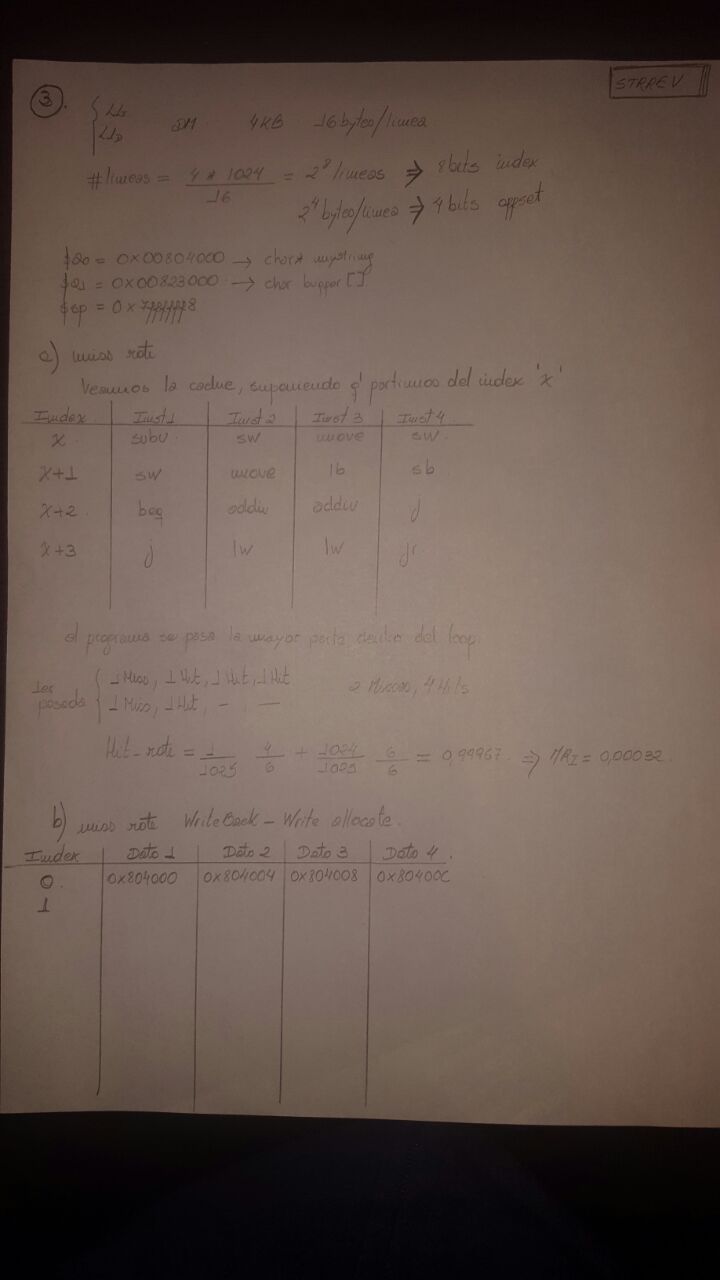 STRREV
3.
L1I
L1D DM 4KB 16 bytes/linea
#lineas = 4 * 1024 / 16 = 2^8 lineas ⇒ 8 bits index
2^4 bytes/linea ⇒ 4 bits offset
$a0 = 0x00804000 → char* mystring
$a1 = 0x00823000 → char buffer []
$sp = 0x7ffffff8
a) miss rate
Veamos la cache, suponiendo q' partimos del index 'x'
Index Inst 1 Inst 2 Inst 3 Inst 4
x subu sw move sw
x+1 sw move lb sb
x+2 beq addiu addiu j
x+3 j lw lw jr
el programa se pasa la mayor parte dentro del loop
1er pasada
1 Miss, 1 Hit, 1 Hit, 1 Hit
1 Miss, 1 Hit, - , —
2 Misses, 4 Hits
Hit-rate = 1/1025 4/6 + 1024/1025 6/6 = 0,99967 ⇒ MR_I = 0,00032
b) miss rate WriteBack - Write allocate.
Index Dato 1 Dato 2 Dato 3 Dato 4
0 0x804000 0x804004 0x804008 0x80400C
1